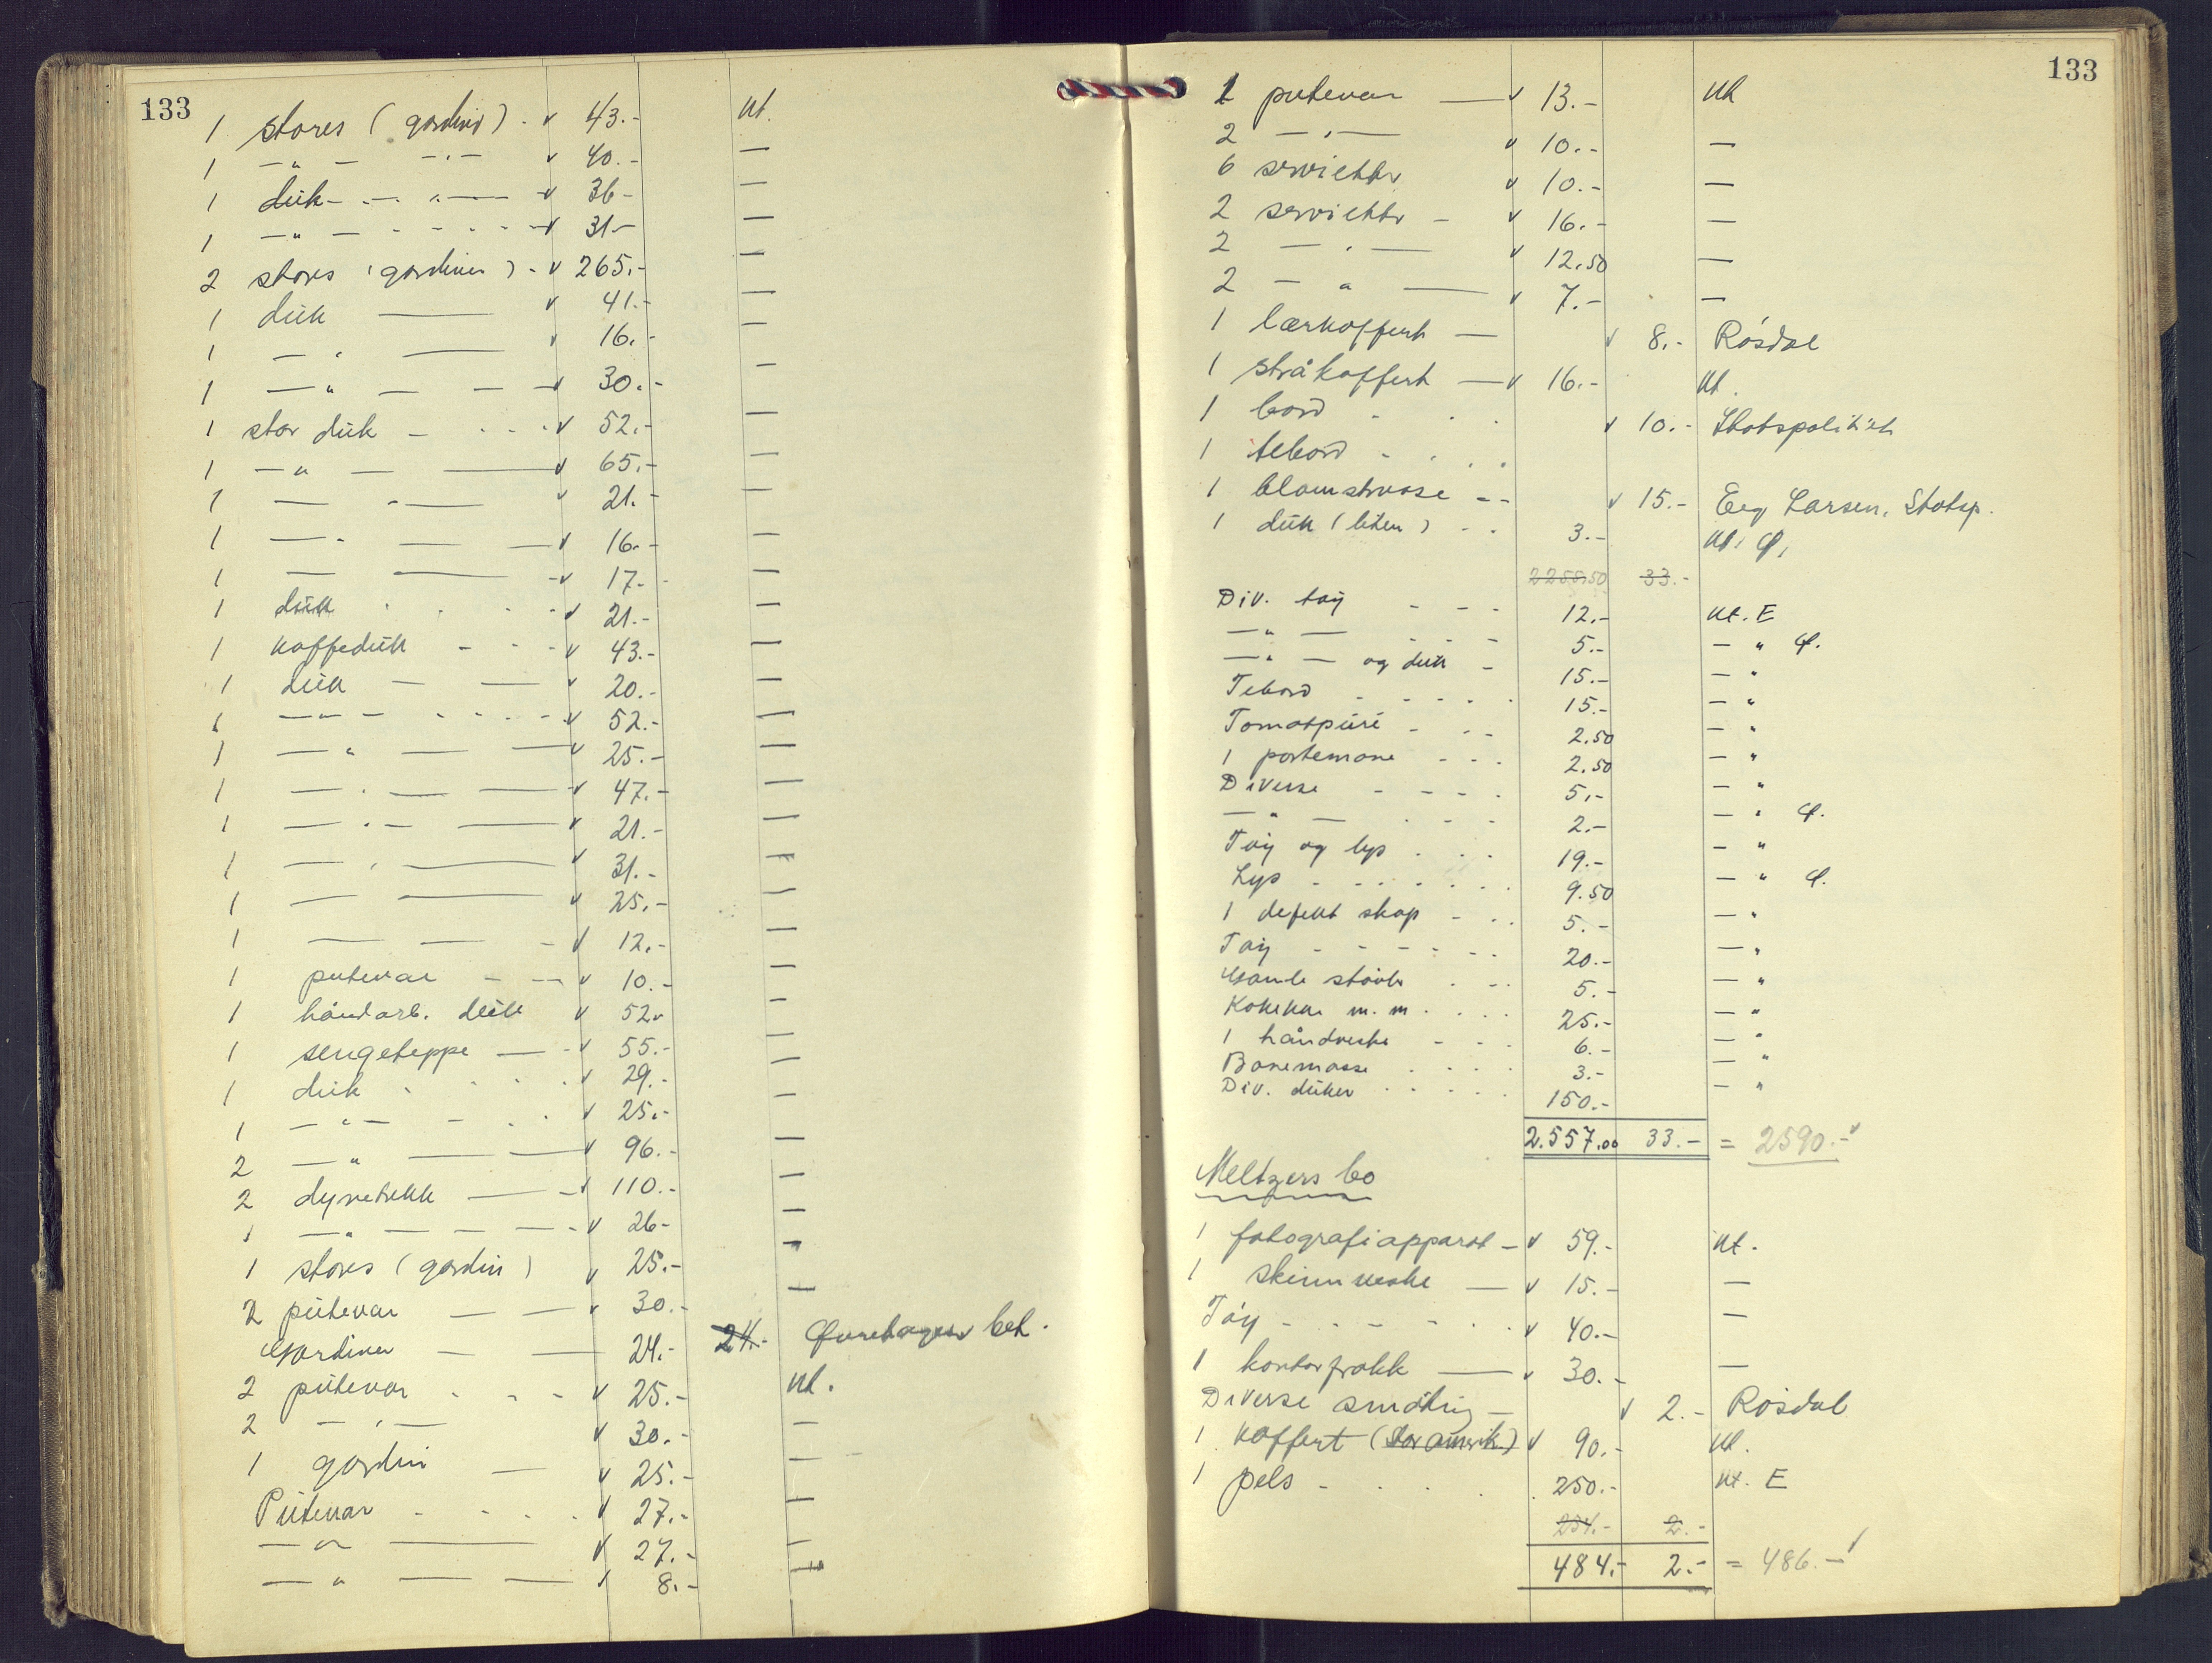 133
1 stores (gardin) - v 43.- kt.
1 — " — - " - v 40.- —
1 duk - - - " — v 36- —
1 — " — - - - - v 31- —
2 stores (gardiner) - v 265.- —
1 duk — v 41.- —
1 — " — v 16.- —
1 — " — — v 30.- —
1 stor duk - - - v 52.- —
1 — " — — v 65.- —
1 — " — v 21.- —
1 — " — — v 16.- —
1 — — v 17.- —
1 duk - - - v 21.- —
1 kaffeduk - - - v 43.- —
1 duk — — v 20.- —
1 — " — - - - v 52.- —
1 — " — — v 25.- —
1 — " — — v 47.- —
1 — " — — v 21.- —
1 — " — v 31.- —
1 — — v 25.- —
1 — — - v 12.- —
1 putevar - — v 10.- —
1 håndarb. duk v 52.- —
1 sengeteppe — - v 55.- —
1 duk - - - v 29.- —
1 — " — - - v 25.- —
2 — " — — v 96.- —
2 dynetrekk — v 110.- —
1 — " — — — v 26- —
1 stores (gardin) v 25.- —
2 putevar — — v 30.- —
Gardiner — — 24.- 24.- bet.
2 putevar - - - v 25.- kt.
2 — " — v 30.- —
1 gardin — v 25.- —
Putevar - - - - v 27.- —
— " — v 27.- —
— " — — v 8.- —
133
1 putevar — v 13.- kt
2 — " — v 10.- —
6 servietter v 10.- —
2 servietter - v 16.- —
2 — " — v 12.50 —
2 — " — v 7.- —
1 lærkoffert — v 8.- Røsdal
1 stråkoffert — v 16.- kt.
1 bord - - - v 10.- Statspolitiet
1 tebord - - - -
1 blomstervase - - v 15.- Larsen, Statsp.
1 duk (liten) - - 3.- kt.
2255.50 33.-
Div. tøy - - - 12.- kt. E
— " — - - - 5.- — "
— " — og duk - 15.- — "
Tebord - - - - - 15.- — "
Tomatpuré - - - 2.50 — "
1 portemone - - - 2.50 — "
Diverse - - - - 5.- — "
— " — - - - 2.- — "
Tøy og lys - - - 19.- — "
Lys - - - - - - 9.50 — "
1 defekt skap - - - 5.- — "
Tøy - - - - - - 20.- — "
Gamle støvler - - - 5.- — "
m. m. - - - 25.- — "
1 håndveske - - - 6.- — "
Bonemasse - - - - 3.- — "
Div. duker - - - - - 150.- — "
2.557.00 33.- = 2590.- v
Meltzers bo
1 fotografiapparat - v 59.- kt.
1 skinnveske — v 15.- —
Tøy - - - - - - v 40.- —
1 kontorfrakk — v 30.- —
Diverse småting - v 2.- Røsdal
1 koffert (stor amerik.) v 90.- kt.
1 pels - - - - - 250.- kt. E
234.- 2.-
484.- 2.- = 486.- v